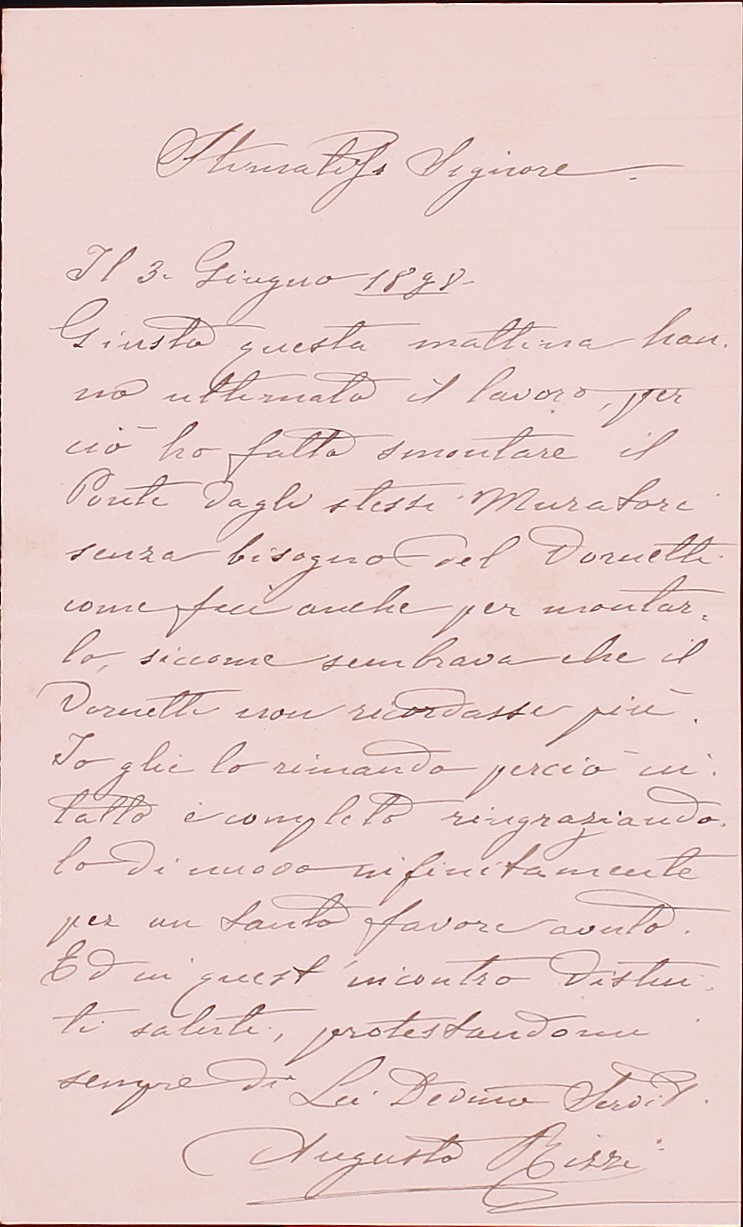 Stimatiss Signore
Il 3. Giugno 1898.
Giusto questa mattina han-
no ultimato il lavoro, per
ciò ho fatto smontare il
Ponte dagli stessi Muratori
senza bisogno del Dornetti
come feci anche per montar-
lo, siccome sembrava che il
Dornetti non ricordasse più.
Io glie lo rimando perciò in-
tatto e completo ringraziando-
lo di nuovo infinitamente
per un tanto favore avuto.
Ed in quest'incontro distin-
ti saluti, protestandomi
sempre di Lei Devmo Servit.
Augusto Rizzi